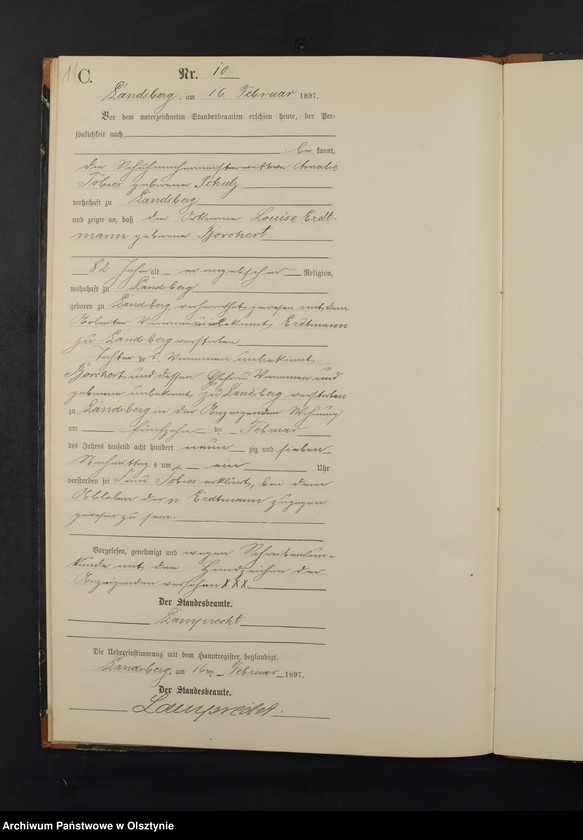 11 C.
Nr. 10
Landsberg, am 16. Februar 1897.
Vor dem unterzeichneten Standesbeamten erschien heute, der Per-
sönlichkeit nach
be kannt,
die Schuhmachermeisterwittwe Amalie
Tobies geborene Schulz
wohnhaft zu Landsberg
und zeigte an, daß die Ortsarme Louise Erdt-
mann geborene Borchert
82 Jahr alt evangelischer Religion,
wohnhaft zu Landsberg
geboren zu Landsberg verheirathet gewesen mit dem
Arbeiter Vornamen unbekannt Erdtmann
zu Landsberg verstorben
Tochter des Vornamen unbekannt
Borchert und dessen Ehefrau Vornamen und
geborene unbekannt zu Landsberg verstorben
zu Landsberg in der Anzeigenden Wohnung
am fünfzehn ten Februar
des Jahres tausend acht hundert neun zig und sieben
Nachmittags um ein Uhr
verstorben sei Frau Tobies erklärt, bei dem
Ableben der p. Erdtmann zugegen
gewesen zu sein.
Vorgelesen, genehmigt und wegen Schreibensun-
kunde mit dem Handzeichen der
Anzeigenden versehen XXX
Der Standesbeamte.
Lamprecht
Die Uebereinstimmung mit dem Hauptregister beglaubigt.
Landsberg, am 16ten Februar 1897.
Der Standesbeamte.
Lamprecht.
Archiwum Państwowe w Olsztynie